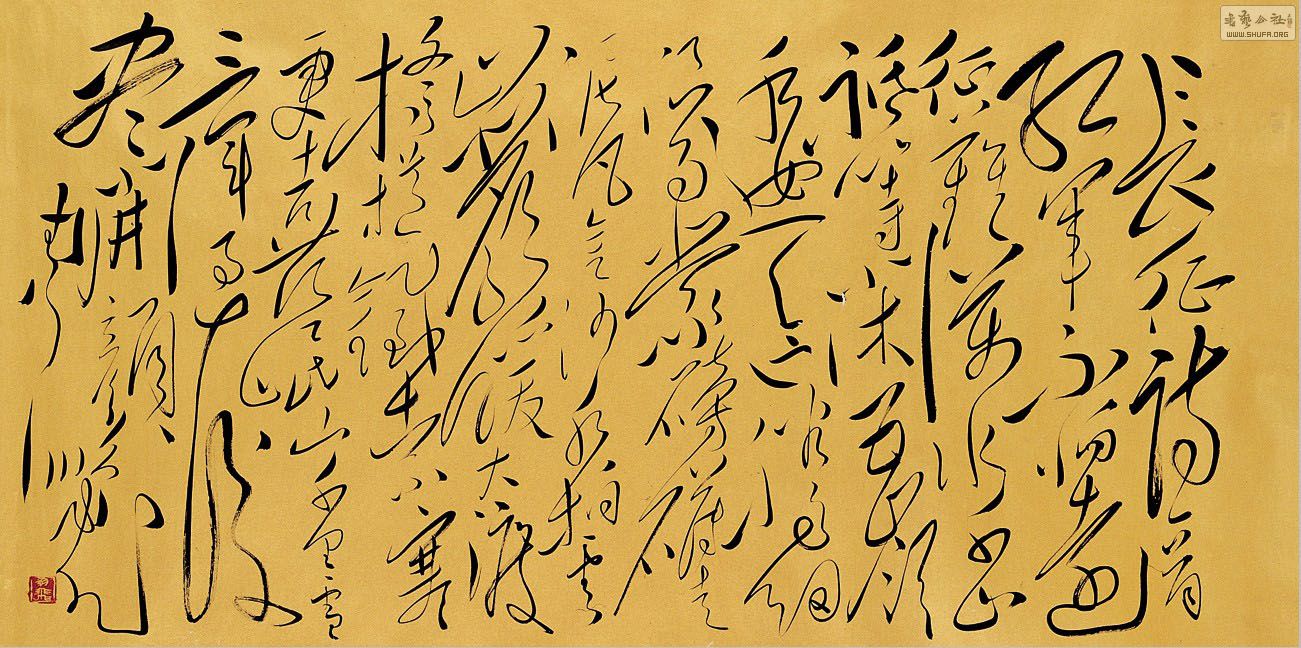 长征诗一首
红军不怕远
征难万水千山
只等闲五岭
逶迤腾细
浪乌蒙磅礴走
泥丸金沙水拍云
崖暖大渡
桥横铁索寒
更喜岷山千里雪
三军过后
尽开颜
書藝公社
WWW.SHUFA.ORG